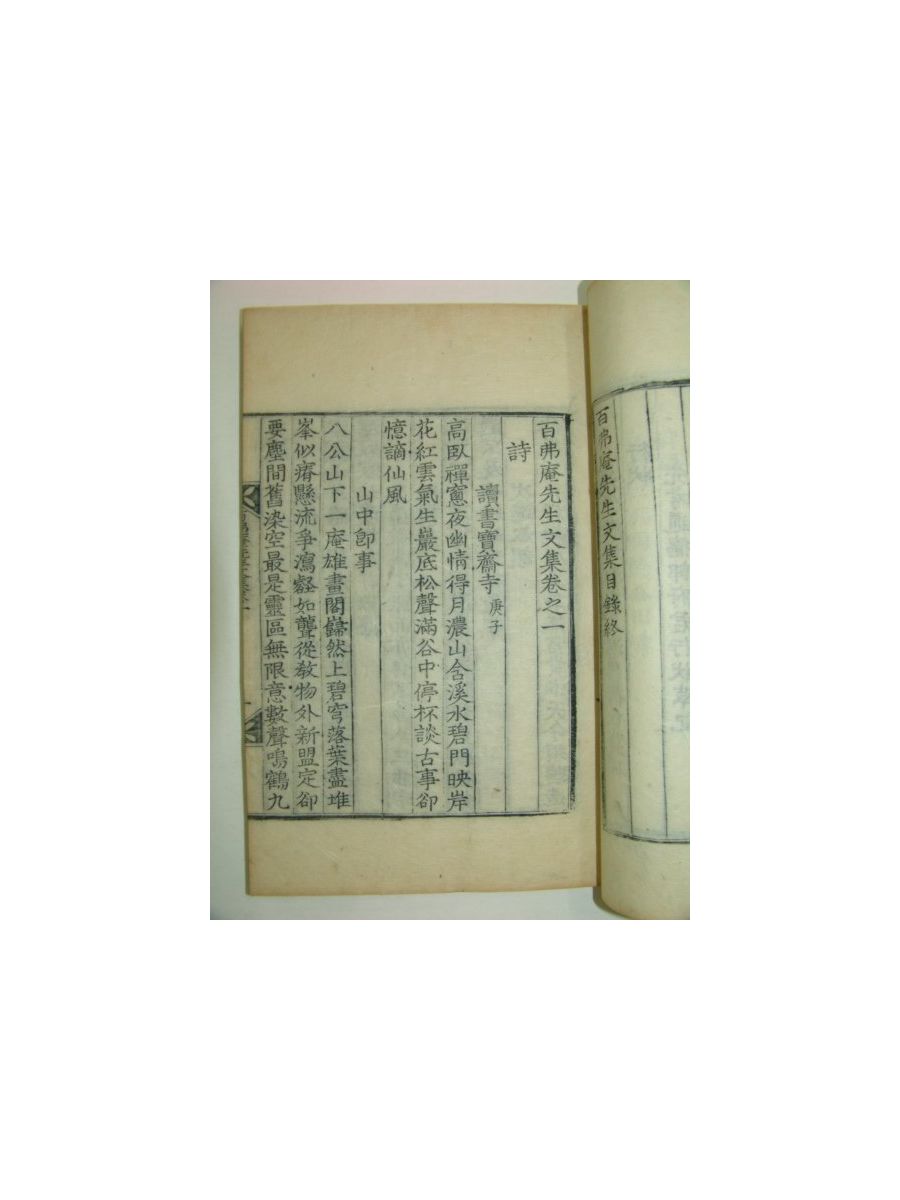 百弗庵先生文集目錄終
百弗庵先生文集卷之一
詩
讀書寶齋寺 庚子
高臥禪窻夜幽情得月濃山含溪水碧門映岸
花紅雲氣生巖底松聲滿谷中停杯談古事卻
憶謫仙風
山中卽事
八公山下一庵雄畫閣巋然上碧穹落葉盡堆
峯似瘠懸流爭瀉壑如聾從教物外新盟定卻
要塵間舊染空最是靈區無限意數聲鳴鶴九